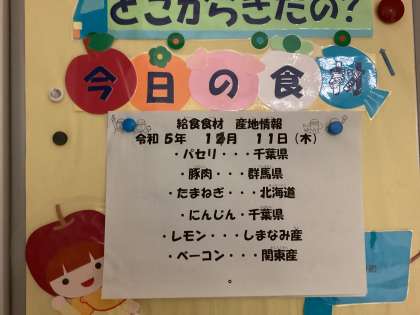 どこからきたの?
今日の食材
給食食材 産地情報
令和 5年 12月 11日(木)
・パセリ・・・千葉県
・豚肉・・・群馬県
・たまねぎ・・・北海道
・にんじん・千葉県
・レモン・・・しまなみ産
・ベーコン・・・関東産
。